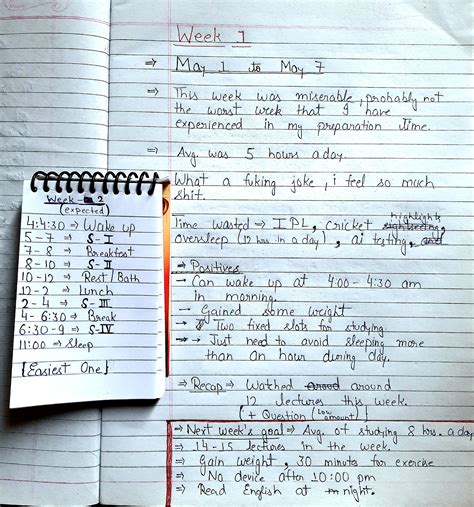 Week 1
⇒ May 1 to May 7
⇒ This week was miserable, probably not
the worst week that I have
experienced in my preparation time.
⇒ Avg. was 5 hours a day.
What a fuking joke, i feel so much
shit.
Time wasted ⇒ IPL, cricket highlights,
oversleep (12 hrs in a day), ai testing,
→ Positives
→ Can wake up at 4:00 - 4:30 am
in morning.
→ Gained some weight
→ Two fixed slots for studying
→ Just need to avoid sleeping more
than an hour during day.
→ Recap ⇒ Watched around
12 lectures this week.
(+ Question (Low amount)
→ Next week's goal → Avg. of studying 8 hrs. a day
⇒ 14-15 lectures in the week.
⇒ Gain weight, 30 minutes for exercise
⇒ No device after 10:00 pm
⇒ Read English at night.
Week - 2
(expected)
4:4:30 ⇒ Wake up
5 - 7 ⇒ S-I
7 - 8 ⇒ Breakfast
8 - 10 ⇒ S-II
10 - 12 ⇒ Rest/Bath
12 - 2 ⇒ Lunch
2 - 4 ⇒ S-III
4 - 6:30 ⇒ Break
6:30 - 9 ⇒ S-IV
11:00 ⇒ Sleep
{Easiest One}